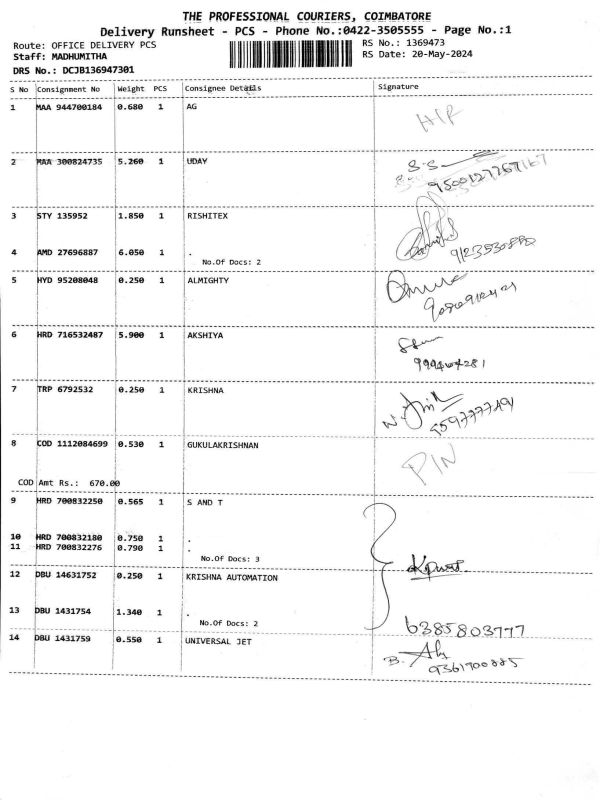 THE PROFESSIONAL COURIERS, COIMBATORE
Delivery Runsheet - PCS - Phone No.:0422-3505555 - Page No.:1
Route: OFFICE DELIVERY PCS RS No.: 1369473
Staff: MADHUMITHA RS Date: 20-May-2024
DRS No.: DCJB136947301
S No Consignment No Weight PCS Consignee Details Signature
1 MAA 944700184 0.680 1 AG
2 MAA 300824735 5.260 1 UDAY
S.S
3 STY 135952 1.850 1 RISHITEX
4 AMD 27696887 6.050 1 .
No.Of Docs: 2
5 HYD 95208048 0.250 1 ALMIGHTY
6 HRD 716532487 5.900 1 AKSHIYA
7 TRP 6792532 0.250 1 KRISHNA
8 COD 1112084699 0.530 1 GUKULAKRISHNAN
PIN
COD Amt Rs.: 670.00
9 HRD 700832250 0.565 1 S AND T
10 HRD 700832180 0.750 1 .
11 HRD 700832276 0.790 1 .
No.Of Docs: 3
12 DBU 14631752 0.250 1 KRISHNA AUTOMATION
13 DBU 1431754 1.340 1 .
No.Of Docs: 2
6385803777
14 DBU 1431759 0.550 1 UNIVERSAL JET